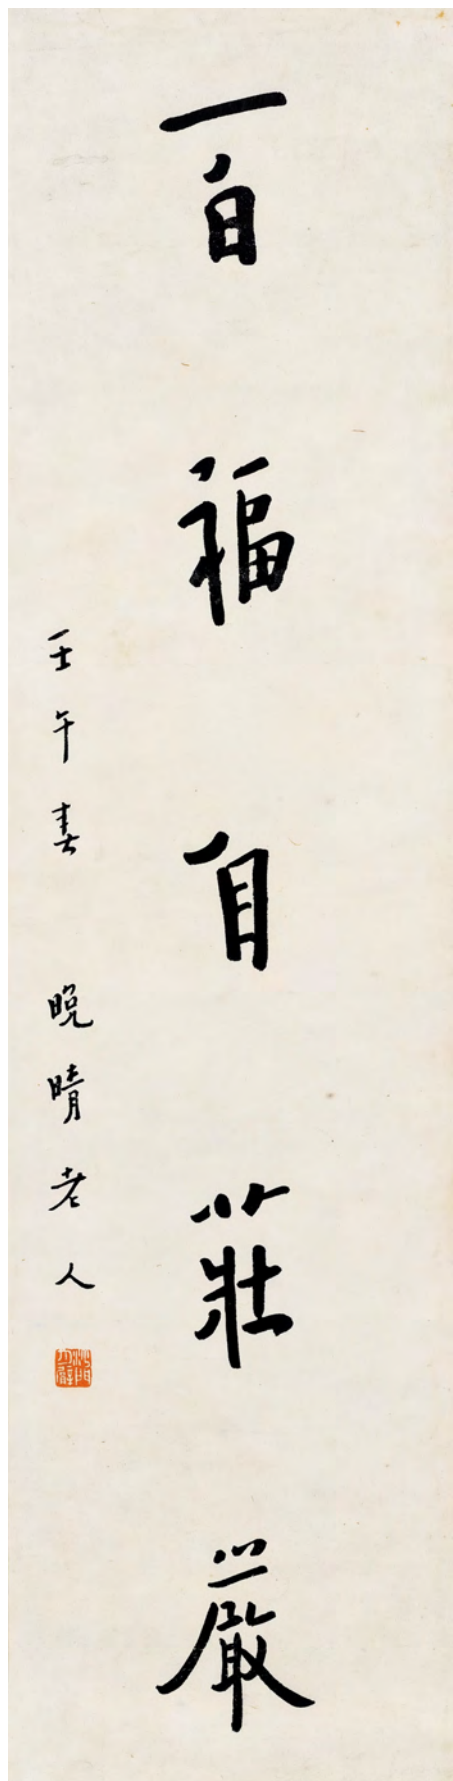 百福自莊嚴
壬午春 晚晴老人